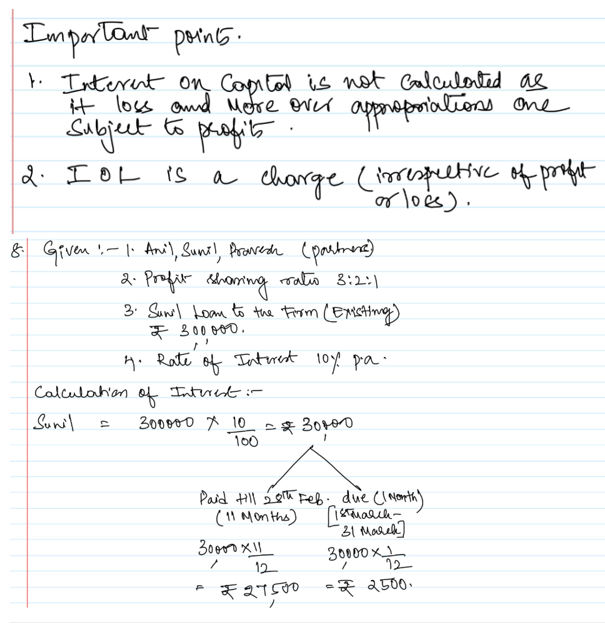 Important points.
1. Interest on Capital is not calculated as
it loss and more over appropriations are
subject to profits.
2. IOL is a charge (irrespective of profit
or loss).
8. Given :- 1. Anil, Sunil, Pravesh (partners)
2. Profit sharing ratio 3:2:1
3. Sunil Loan to the Firm (Existing)
₹ 300,000.
4. Rate of Interest 10% p.a.
Calculation of Interest :-
Sunil = 300000 × 10/100 = ₹ 30,000
Paid till 28th Feb. due (1 Month)
(11 Months) [1st March-
31 March]
30,000 × 11/12 30,000 × 1/12
= ₹ 27,500 = ₹ 2500.